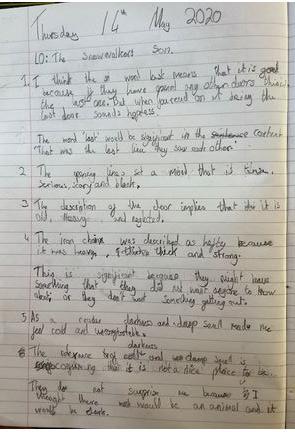 Thursday 14th May 2020
LO: The Snowwalkers Son.
1. I think the word last means that it is good
because if they have passed any other doors this is
the last one. But when you read on it being the
last door sounds hopeless.
The word 'last' would be significant in the context
That was the last time they saw each other.
2 The opening lines set a mood that is tense,
serious, scary and bleak.
3 The description of the door implies that it is
old, heavy and neglected.
4 The iron chains was described as hefty because
it was heavy, thick and strong.
This is significant because they might have
something that they did not want anyone to know
about, or they don't want something getting out.
5 As a reader darkness and damp smell made me
feel cold and uncomfortable.
6 The darkness and damp smell is
that it is not a nice place to be.
They do not surprise me because I
thought there would be an animal and it
would be dark.